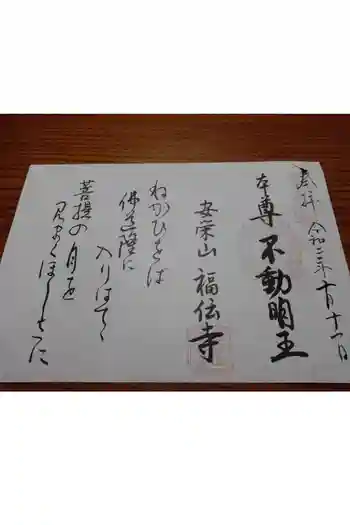 奉拝 令和三年十月十一日
本尊 不動明王
安栄山 福伝寺
ねがひをば
佛道隆に
入りはてゝ
菩提の月を
見まくほしさに